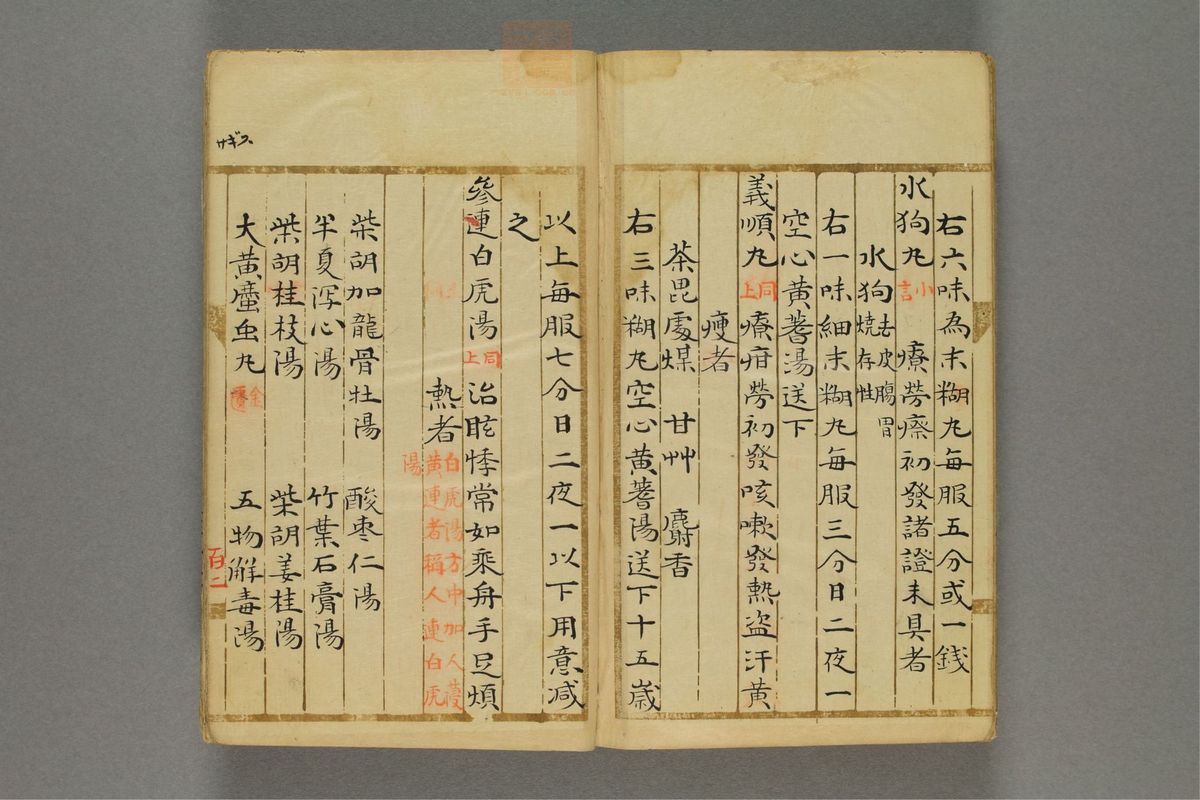 右六味為末糊丸每服五分或一錢
水狗丸 小言 療勞瘵初發諸證未具者
水狗 去皮膓胃 燒存性
右一味細末糊丸每服三分日二夜一
空心黃蓍湯送下
義順丸 同上 療疳勞初發咳嗽發熱盜汗黃
瘦者
荼毘處煤 甘艸 麝香
右三味糊丸空心黃蓍湯送下十五歲
以上每服七分日二夜一以下用意減
之
參連白虎湯 同上 治眩悸常如乘舟手足煩
熱者 白虎湯方中加人葠
黃連者稱人連白虎
湯
柴胡加龍骨牡湯 酸枣仁湯
半夏泻心湯 竹葉石膏湯
柴胡桂枝湯 柴胡姜桂湯
大黃䗪虫丸 金匱 五物解毒湯
百二
サギス